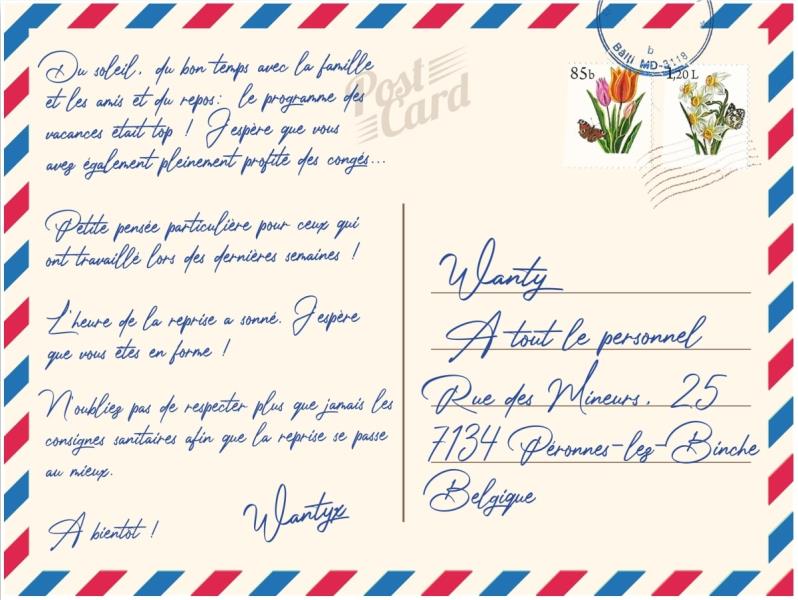 Du soleil, du bon temps avec la famille
et les amis et du repos: le programme des
vacances était top ! J'espère que vous
avez également pleinement profité des congés...
Petite pensée particulière pour ceux qui
ont travaillé lors des dernières semaines !
L'heure de la reprise a sonné. J'espère
que vous êtes en forme !
N'oubliez pas de respecter plus que jamais les
consignes sanitaires afin que la reprise se passe
au mieux.
A bientôt !
Wantyx
Post
Card
85b
1,20 L
b
Bălți MD-3118
Wanty
A tout le personnel
Rue des Mineurs, 25
7134 Péronnes-lez-Binche
Belgique